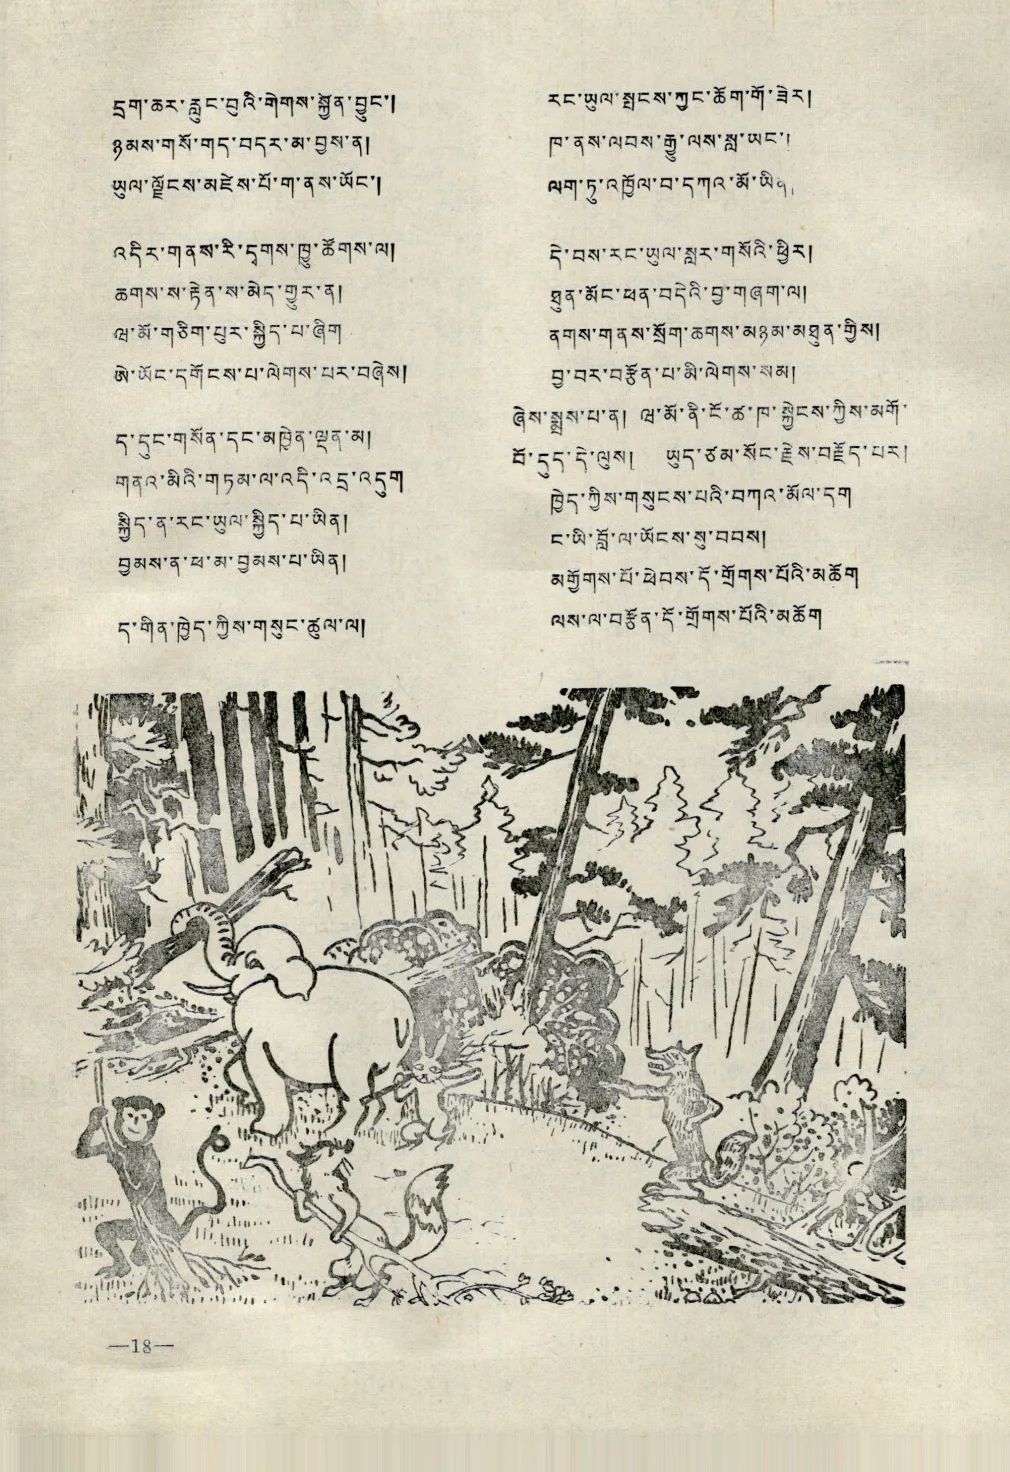 དྲག་ཆར་རླུང་བུའི་གེགས་སྐྱོན་བྱུང་།
ཉམས་གསོ་གད་བདར་མ་བྱས་ན།
ཡུལ་ལྗོངས་མཛེས་པོ་ག་ནས་ཡོང་།
འདིར་གནས་རི་དྭགས་ཁྱུ་ཚོགས་ལ།
ཆགས་ས་རྟེན་ས་མེད་གྱུར་ན།
ཝ་མོ་གཅིག་པུར་སྐྱིད་པ་ཞིག
ཨེ་ཡོང་དགོངས་པ་ལེགས་པར་བཞེས།
ད་དུང་གསོན་དང་མཁྱེན་ལྡན་མ།
གནའ་མིའི་གཏམ་ལ་འདི་འདྲ་འདུག
སྐྱིད་ན་རང་ཡུལ་སྐྱིད་པ་ཡིན།
བྱམས་ན་ཕ་མ་བྱམས་པ་ཡིན།
ད་གིན་ཁྱེད་ཀྱིས་གསུང་ཚུལ་ལ།
རང་ཡུལ་སྤངས་ཀྱང་ཆོག་གོ་ཟེར།
ཁ་ནས་ལབས་རྒྱུ་ལས་སླ་ཡང་།
ལག་ཏུ་འཁྱོལ་བ་དཀའ་མོ་ཡིན།
དེ་བས་རང་ཡུལ་སླར་གསོའི་ཕྱིར།
ཐུན་མོང་ཕན་བདེའི་བྱ་གཞག་ལ།
ནགས་གནས་སྲོག་ཆགས་མཉམ་མཐུན་གྱིས།
བྱ་བར་བརྩོན་པ་མི་ལེགས་སམ།
ཞེས་སྨྲས་པ་ན། ཝ་མོ་ནི་ངོ་ཚ་ཁ་སྐྱེངས་ཀྱིས་མགོ་
བོ་དུད་དེ་ལུས། ཡུད་ཙམ་སོང་རྗེས་བརྗོད་པར།
ཁྱེད་ཀྱིས་གསུངས་པའི་བཀའ་མོལ་དག
ང་ཡི་བློ་ལ་ཡོངས་སུ་བབས།
མགྱོགས་པོ་ཕེབས་དོ་གྲོགས་པོའི་མཆོག
ལས་ལ་བརྩོན་དོ་གྲོགས་པོའི་མཆོག
—18—